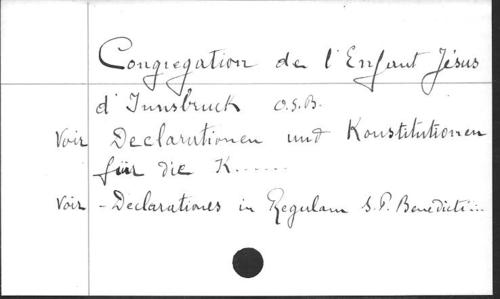 Congregation de l'Enfant Jésus
d'Innsbruck O.S.B.
Voir Declarationen und Konstitutionen
für die K......
Voir - Declarationes in Regulam S.P. Benedicti...